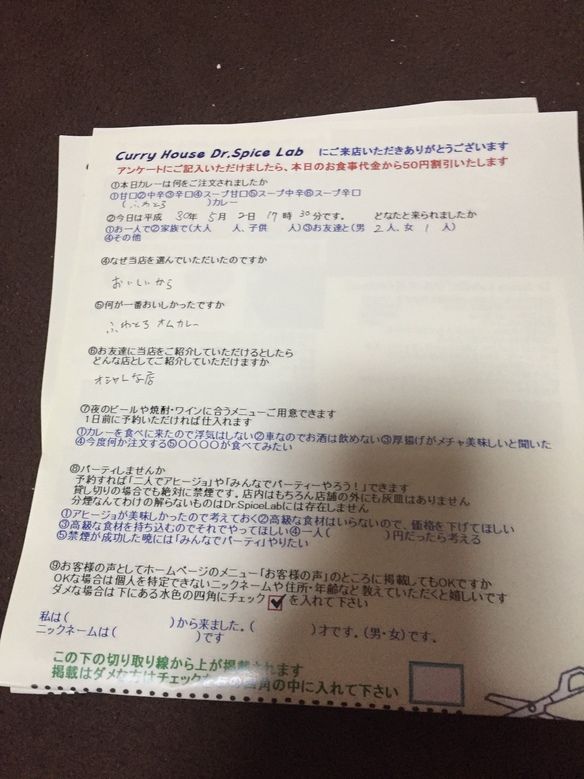 Curry House Dr.Spice Lab にご来店いただきありがとうございます
アンケートにご記入いただけましたら、本日のお食事代金から50円割引いたします
①本日カレーは何をご注文されましたか
①甘口②中辛③辛口④スープ甘口⑤スープ中辛⑥スープ辛口
(ふわとろ )カレー
②今日は平成 30年 5月 2日 17時 30分です。 どなたと来られましたか
①お一人で②家族で(大人 人、子供 人)③お友達と(男 2人、女 1人)
④その他
④なぜ当店を選んでいただいたのですか
おいしいから
⑤何が一番おいしかったですか
ふわとろオムカレー
⑥お友達に当店をご紹介していただけるとしたら
どんな店としてご紹介していただけますか
オシャレな店
⑦夜のビールや焼酎・ワインに合うメニューご用意できます
1日前に予約いただければ仕入れます
①カレーを食べに来たので浮気はしない②車なのでお酒は飲めない③厚揚げがメチャ美味しいと聞いた
④今度何か注文する⑤〇〇〇〇が食べてみたい
⑧パーティしませんか
予約すれば「二人でアヒージョ」や「みんなでパーティーやろう!」できます
貸し切りの場合でも絶対に禁煙です。店内はもちろん店舗の外にも灰皿はありません
分煙なんてわけの解らないものはDr.SpiceLabには存在しません
①アヒージョが美味しかったので考えておく②高級な食材はいらないので、価格を下げてほしい
③高級な食材を持ち込むのでそれでやってほしい④一人( )円だったら考える
⑤禁煙が成功した暁には「みんなでパーティ」やりたい
⑨お客様の声としてホームページのメニュー「お客様の声」のところに掲載してもOKですか
OKな場合は個人を特定できないニックネームや住所・年齢など教えていただくと嬉しいです
ダメな場合は下にある水色の四角にチェック を入れて下さい
私は( )から来ました。( )才です。(男・女)です。
ニックネームは( )です
この下の切り取り線から上が掲載されます
掲載はダメな方はチェックを の四角の中に入れて下さい